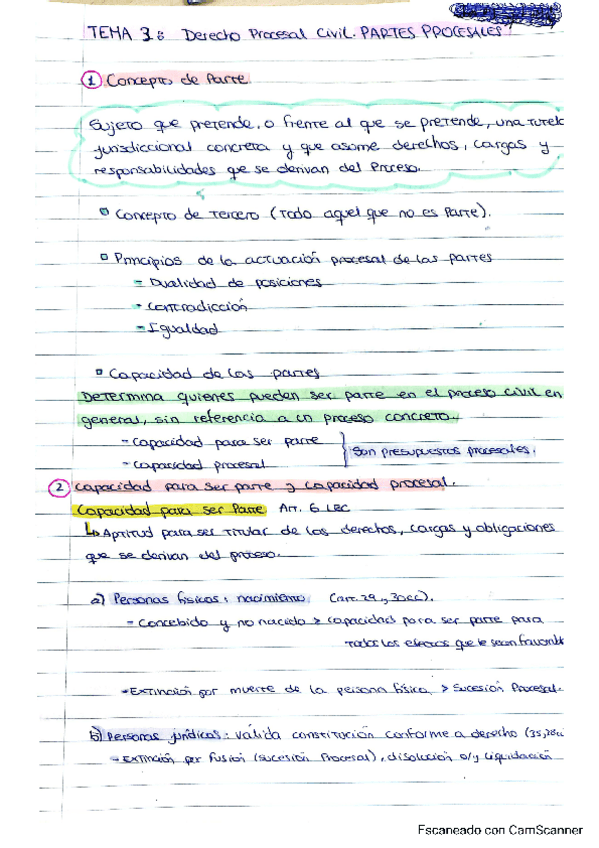 TEMA 3: Derecho Procesal Civil. PARTES PROCESALES
1 Concepto de Parte
Sujeto que pretende, o frente al que se pretende, una tutela
jurisdiccional concreta y que asume derechos, cargas y
responsabilidades que se derivan del Proceso.
Concepto de Tercero (Todo aquel que no es Parte).
Principios de la actuación procesal de las partes
- Dualidad de posiciones
- Contradicción
- Igualdad
Capacidad de las partes
Determina quienes puedan ser parte en el proceso civil en
general, sin referencia a un proceso concreto.
- Capacidad para ser parte
- Capacidad procesal
Son presupuestos procesales.
2 Capacidad para ser parte y capacidad procesal.
Capacidad para ser Parte Art. 6 LEC
↳ Aptitud para ser titular de los derechos, cargas y obligaciones
que se derivan del proceso.
a) Personas físicas: nacimiento (art. 29, 30 CC).
- Concebido y no nacido > capacidad para ser parte para
todos los efectos que le sean favorab
- Extinción por muerte de la persona física > Sucesión Procesal.
b) Personas jurídicas: válida constitución conforme a derecho (35, 38
- Extinción por fusión (sucesión Procesal), disolución o/y liquidación
Escaneado con CamScanner